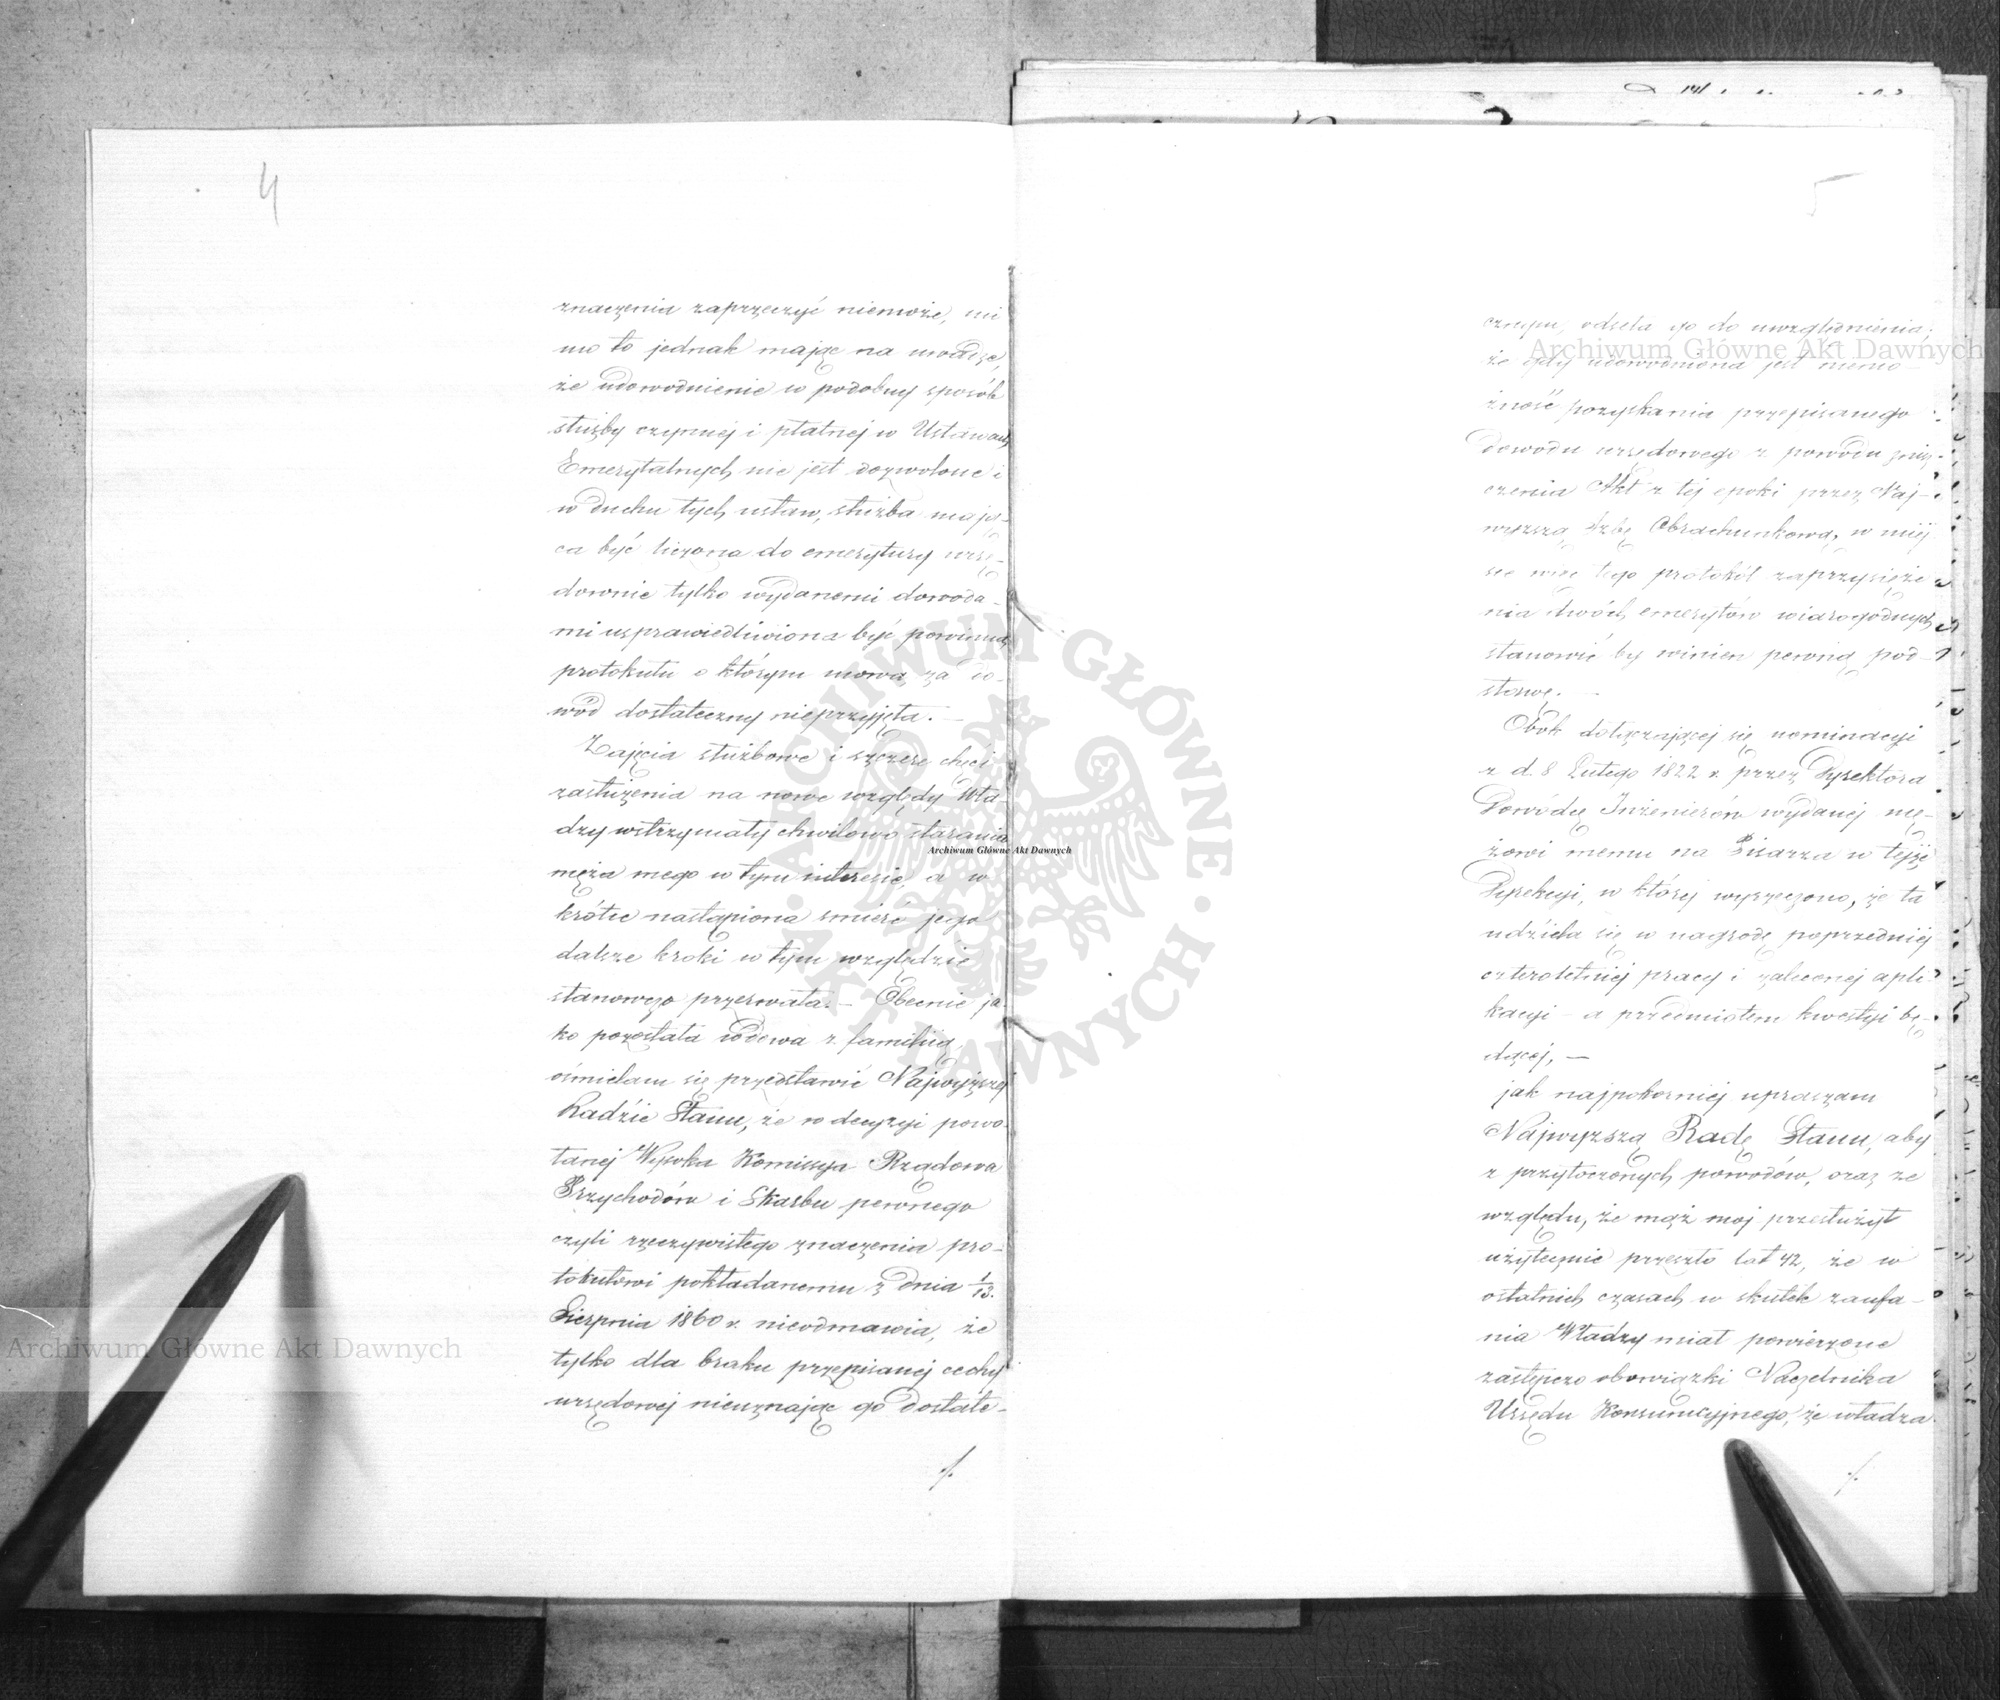 4
znaczenia zaprzeczyć niemoże, mi
mo to jednak mając na uwadze,
że udowodnienie w podobny sposób
służby czynnej i płatnej w Ustawach
Emerytalnych nie jest dozwolone i
w duchu tych ustaw, służba mają-
ca być liczona do emerytury urzę-
downie tylko wydanemi dowoda-
mi usprawiedliwiona być powinna,
protokułu o którym mowa za do-
wód dostateczny nieprzyjęła. —
Zajęcia służbowe i szczere chęci
zasłużenia na nowe względy Wła-
dzy wstrzymały chwilowo starania
męża mego w tym interesie, a w
krótce nastąpiona śmierć jego
dalsze kroki w tym względzie
stanowczo przerwała. — Obecnie ja-
ko pozostała wdowa z familiią,
ośmielam się przedstawić Najwyższej
Radzie Stanu, że w decyzyi powo-
łanej Wysoka Komissya Rządowa
Przychodów i Skarbu pewnego
czyli rzeczywistego znaczenia pro-
tokułowi pokładanemu z dnia 1/13.
Sierpnia 1860 r. nieodmawia, że
tylko dla braku przepisanej cechy
urzędowej nieuznając go dostate-
./.
5
cznym, odseła go do uwzględnienia;
że gdy udowodniona jest niemo-
żność pozyskania przepisanego
dowodu urzędowego z powodu znisz-
czenia Akt z tej epoki przez Naj-
wyższą Izbę Obrachunkową, w miej
sce więc tego protokół zaprzysięże
nia dwóch emerytów wiarogodnych
stanowić by winien pewną pod-
stawę. —
Obok dołączającej się nominacyi
z d. 8 Lutego 1822 r. przez Dyrektora
Dowódcę Inżenierów wydanej mę-
żowi memu na Pisarza w tejże
Dyrekcyi, w której wyrzeczono, że ta
udziela się w nagrodę poprzedniej
czteroletniej pracy i zaleconej apli-
kacyi — a przedmiotem kwestyi bę-
dącej, —
jak najpokorniej upraszam
Najwyższą Radę Stanu, aby
z przytoczonych powodów, oraz ze
względu, że mąż mój przesłużył
użytecznie przeszło lat 42, że w
ostatnich czasach w skutek zaufa-
nia Władzy miał powierzone
zastępczo obowiązki Naczelnika
Urzędu Konsumcyjnego, że władza
./.
Archiwum Główne Akt Dawnych
Archiwum Główne Akt Dawnych
Archiwum Główne Akt Dawnych
ARCHIWUM GŁÓWNE AKT DAWNYCH